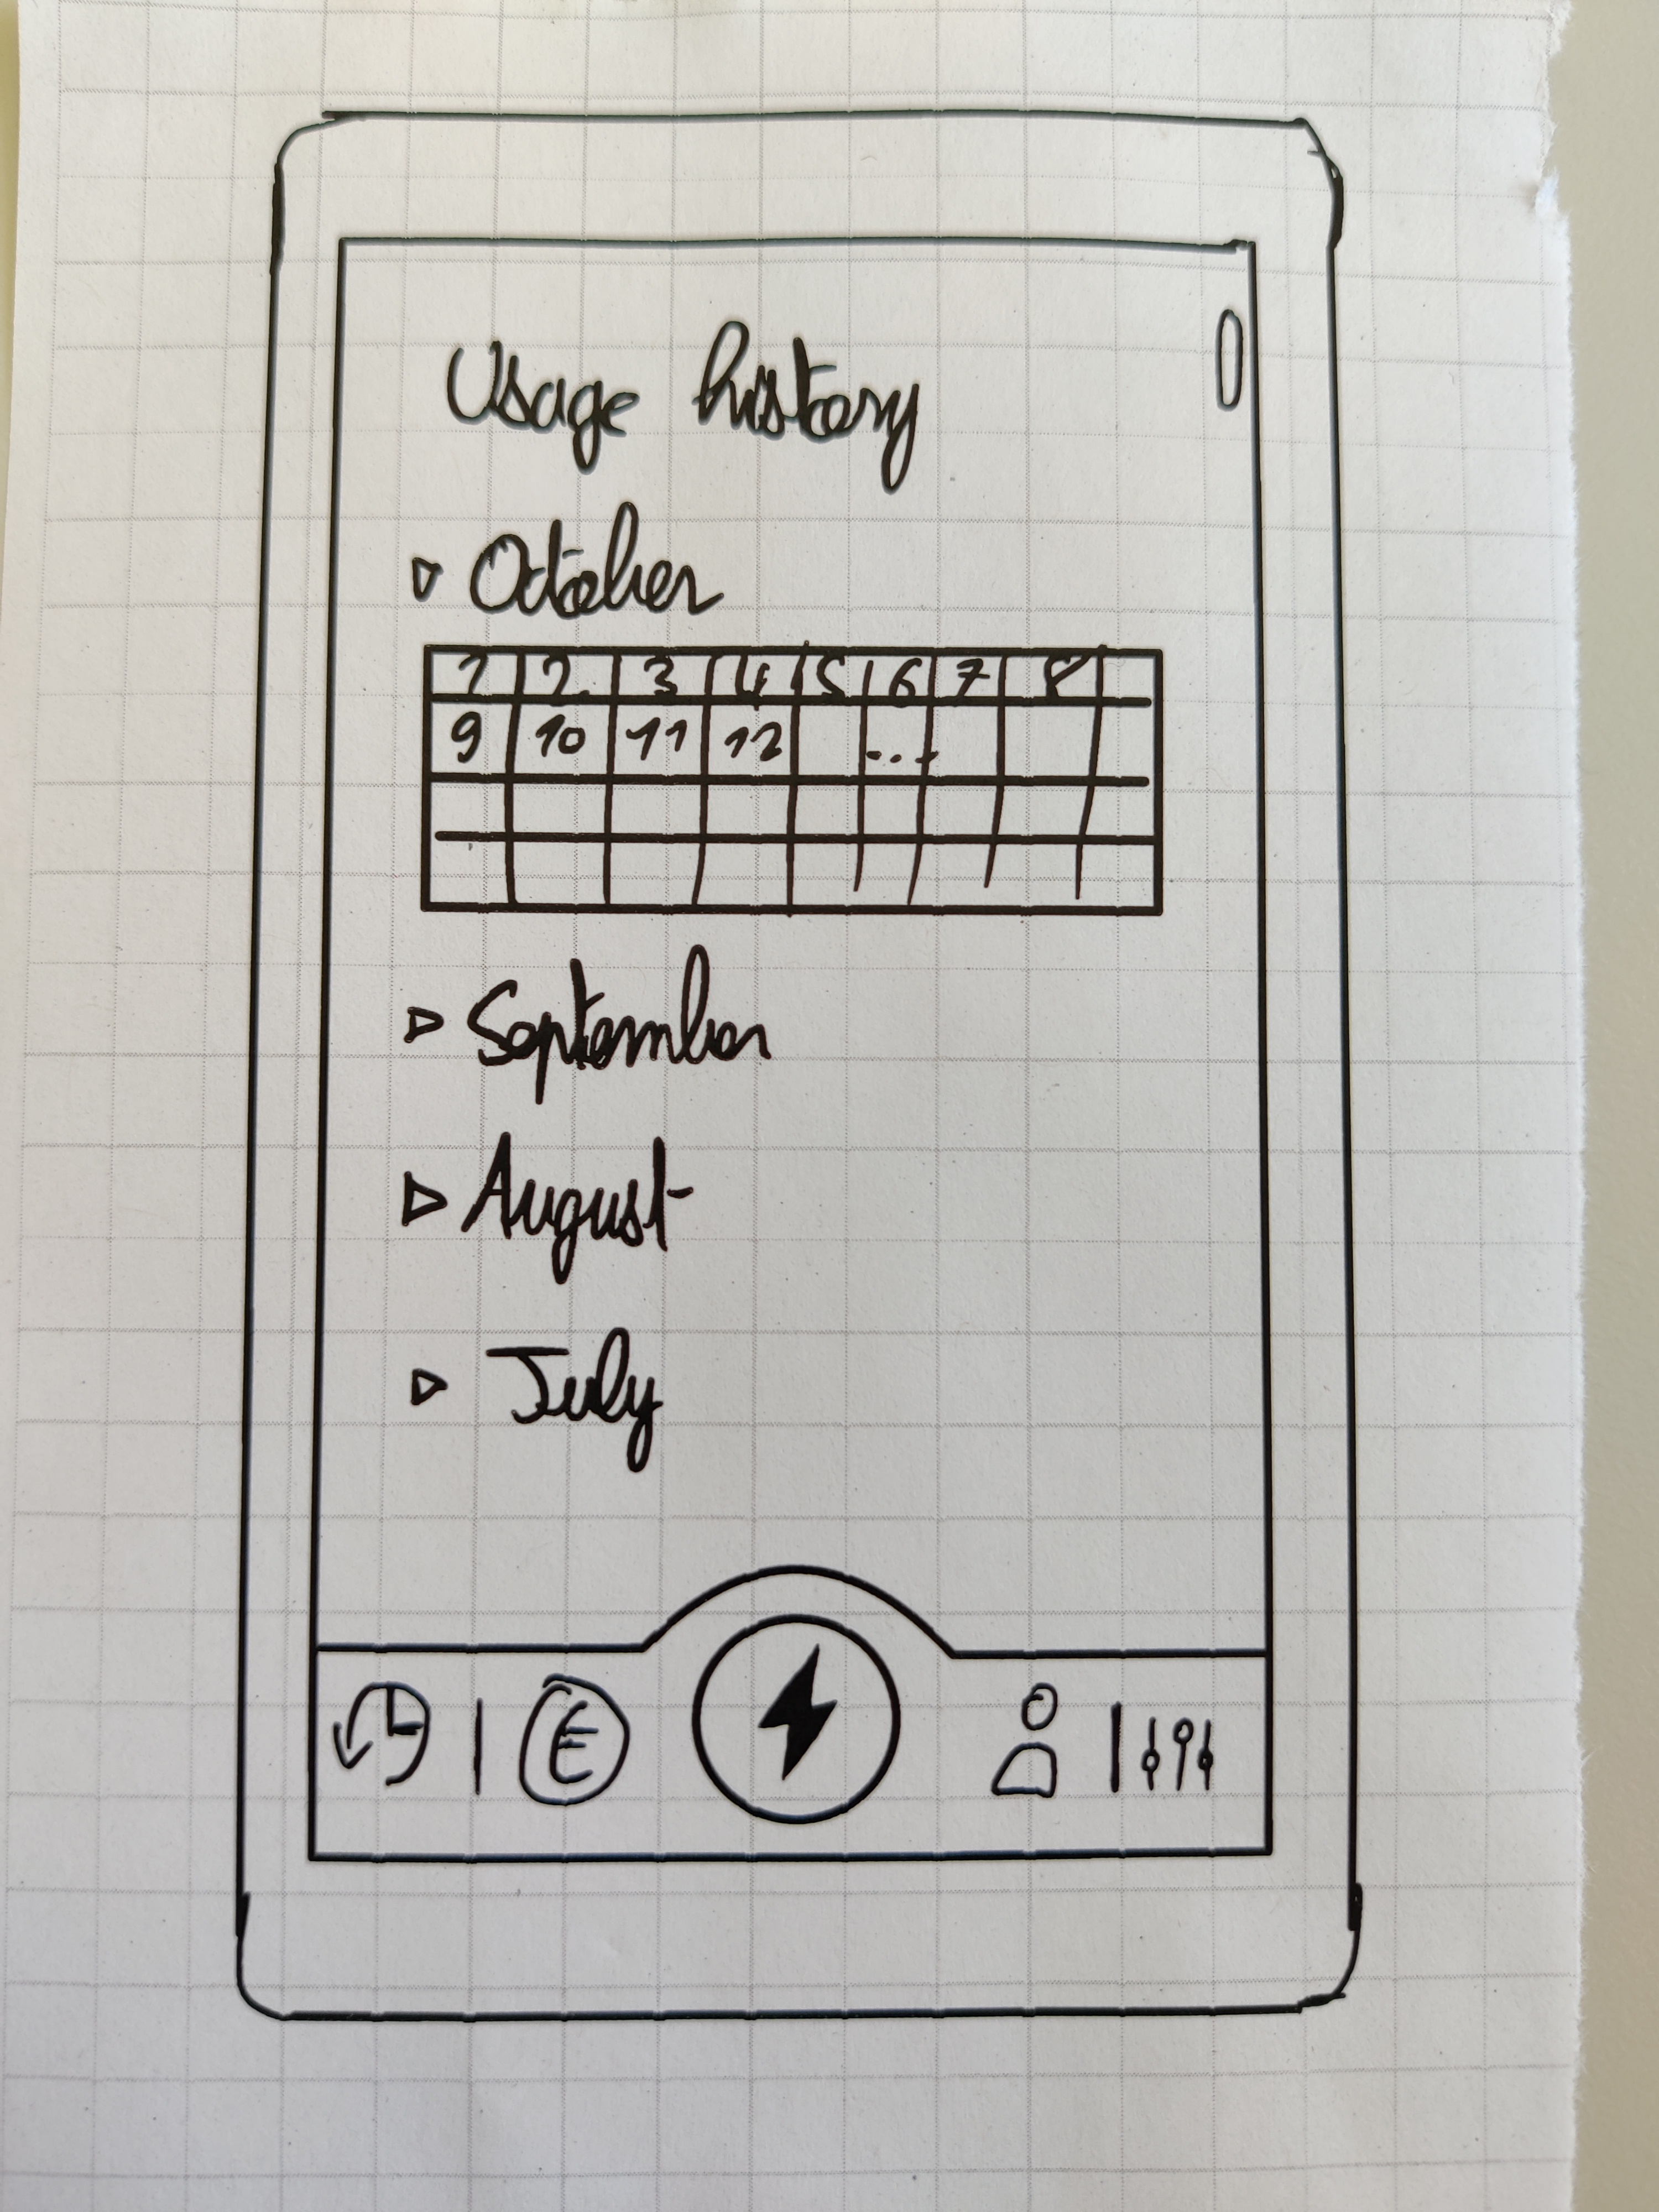 Usage history
October
1 2 3 4 5 6 7 8
9 10 11 12 ...
September
August
July
€